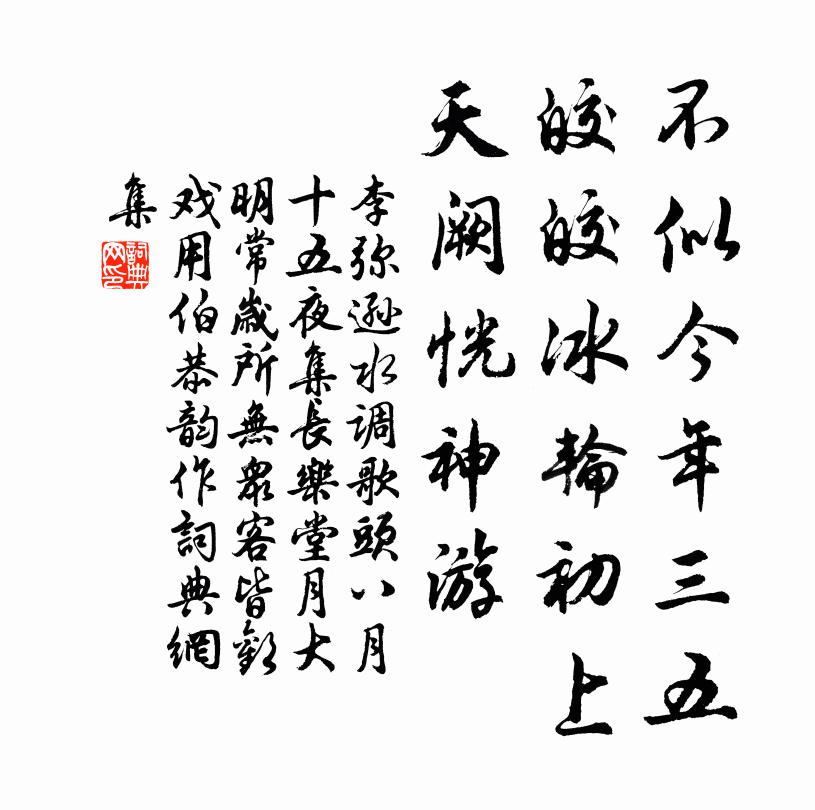 不似今年三五
皎皎冰輪初上
天阙恍神游
李弥遜水调歌頭八月
十五夜集長樂堂月大
明常歲所無眾客皆歡
戏用伯恭韵作詞典網
集
詞典
网印